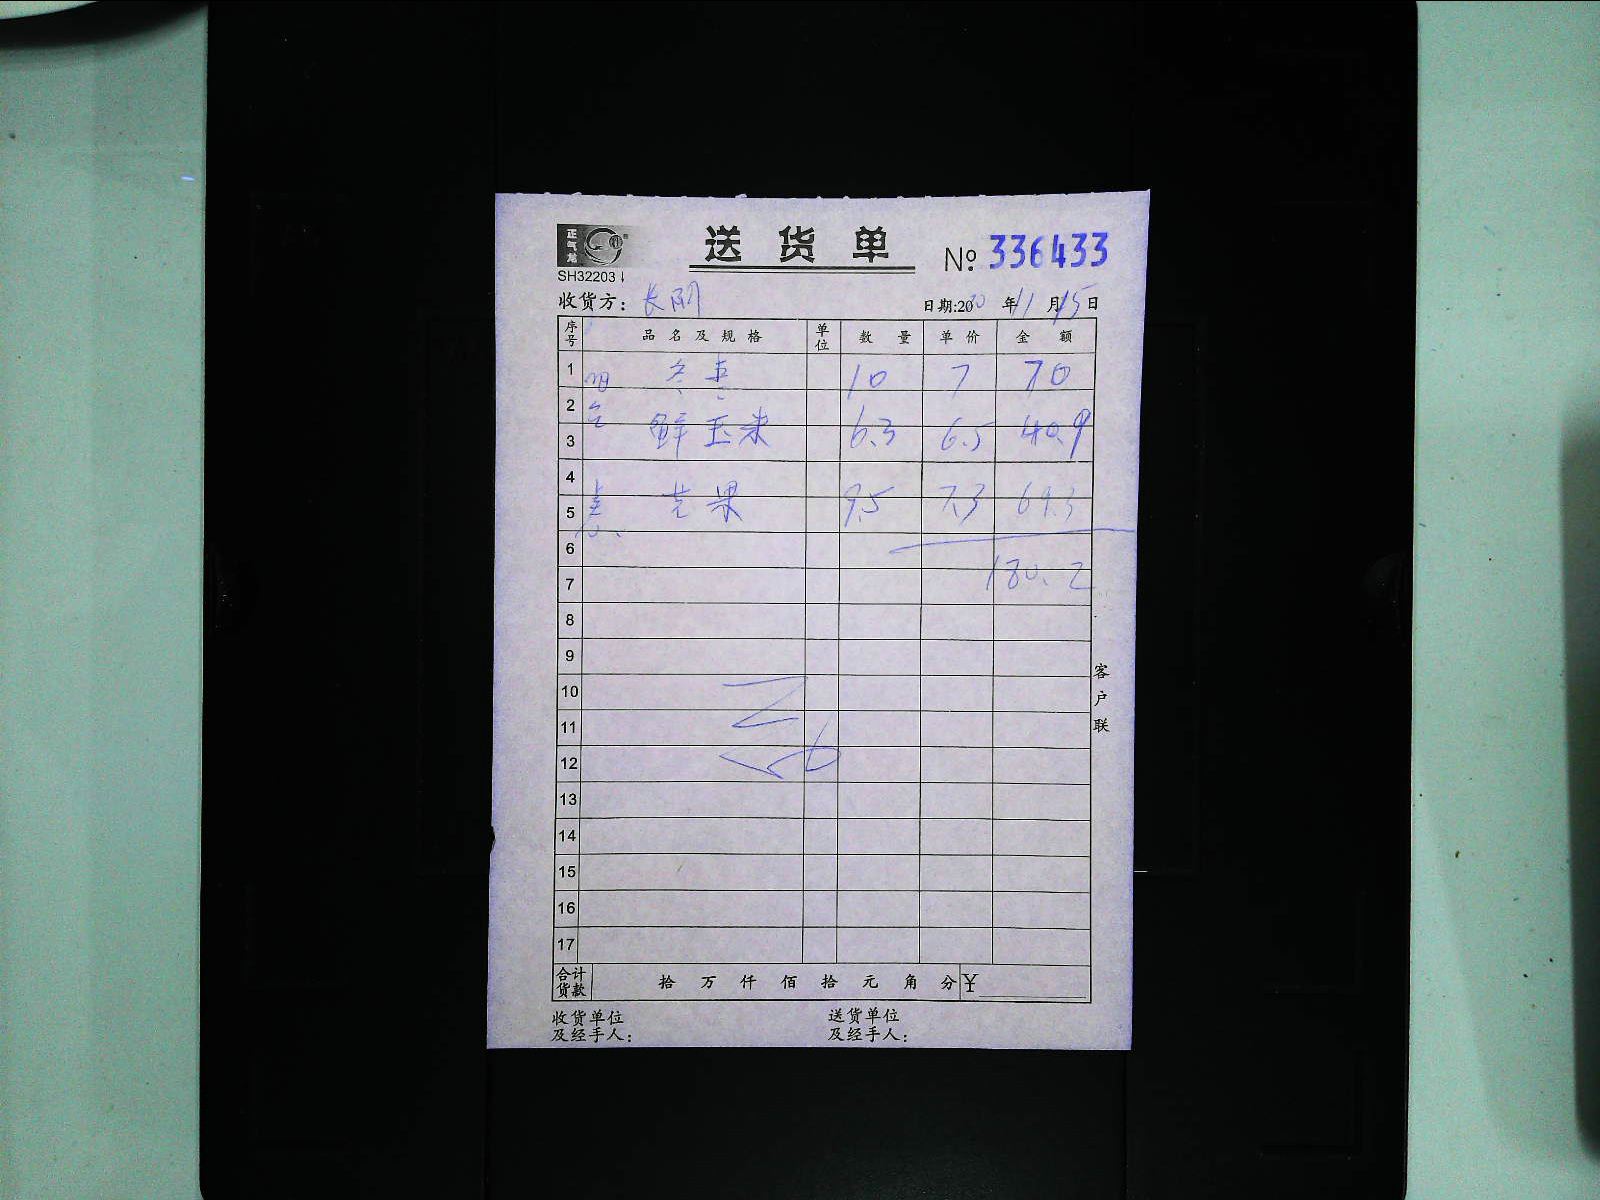 正气龙
送货单
№ 336433
SH32203
收货方：长阴
日期:2020年11月15日
序号 品名及规格 单位 数量 单价 金额
1 冬枣 10 7 70
2
3 鲜玉米 6.3 6.5 40.9
4
5 芒果 9.5 7.3 69.3
6
7 180.2
8
9
10
11
12
13
14
15
16
17
客户联
合计货款 拾 万 仟 佰 拾 元 角 分 ¥
收货单位及经手人：
送货单位及经手人：